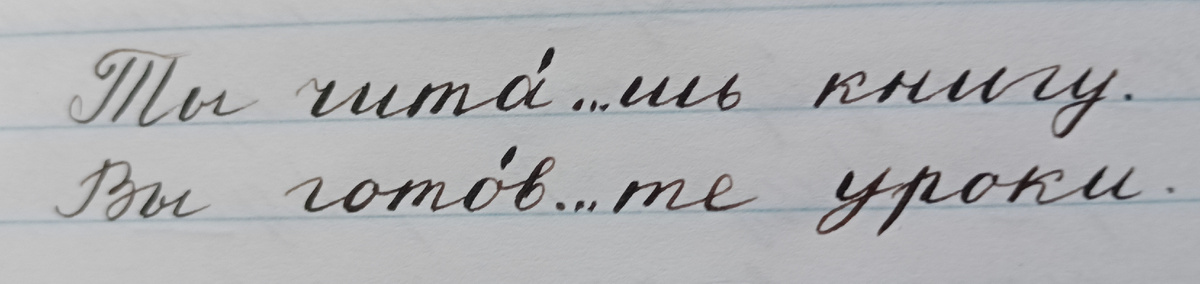 Ты чита́...шь книгу.
Вы гото́в...те уроки.